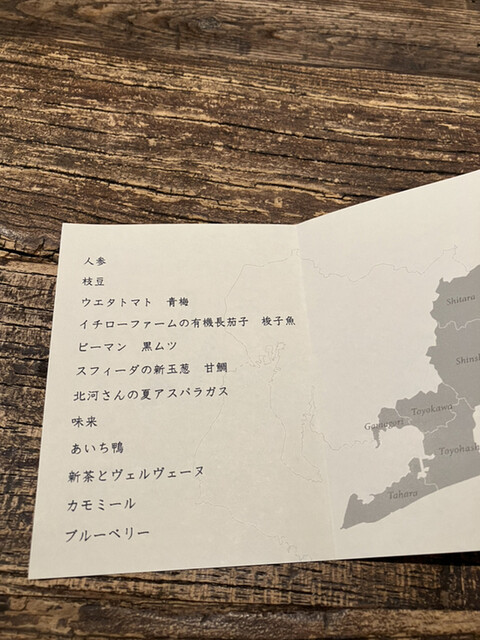 人参
枝豆
ウエタトマト　青梅
イチローファームの有機長茄子　梭子魚
ピーマン　黒ムツ
スフィーダの新玉葱　甘鯛
北河さんの夏アスパラガス
味来
あいち鴨
新茶とヴェルヴェーヌ
カモミール
ブルーベリー
Shitara
Shinsh
Toyokawa
Gamagori
Toyohash
Tahara